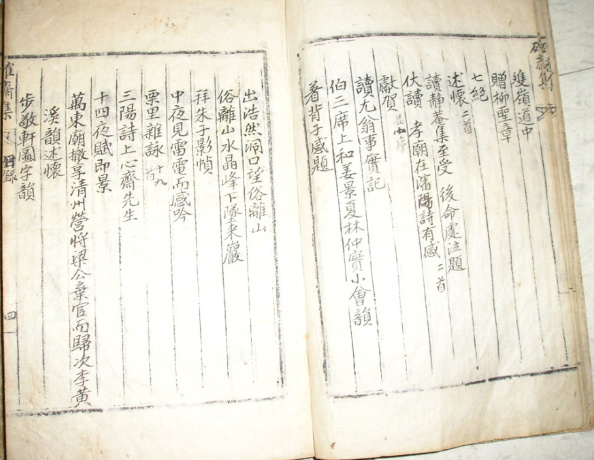 嶺道中
贈柳聖章
七絶
述懷 二首
讀靜菴集至受 後命處注題
伏讀 孝廟在瀋陽詩有感 二首
獻賀
讀尤翁事實記
伯三席上和姜景夏林仲寶小會韻
著背子感題
出浩然洞口望俗離山
俗離山水晶峰下隊來巖
拜朱子影幀
中夜見雷電而感吟
栗里雜詠 十九首
三陽詩上心齋先生
十四夜賦即景
萬東廟撤享清州營將梁公棄官而歸次李黃
溪韻述懷
步敬軒圖字韻
齋集 目錄 四